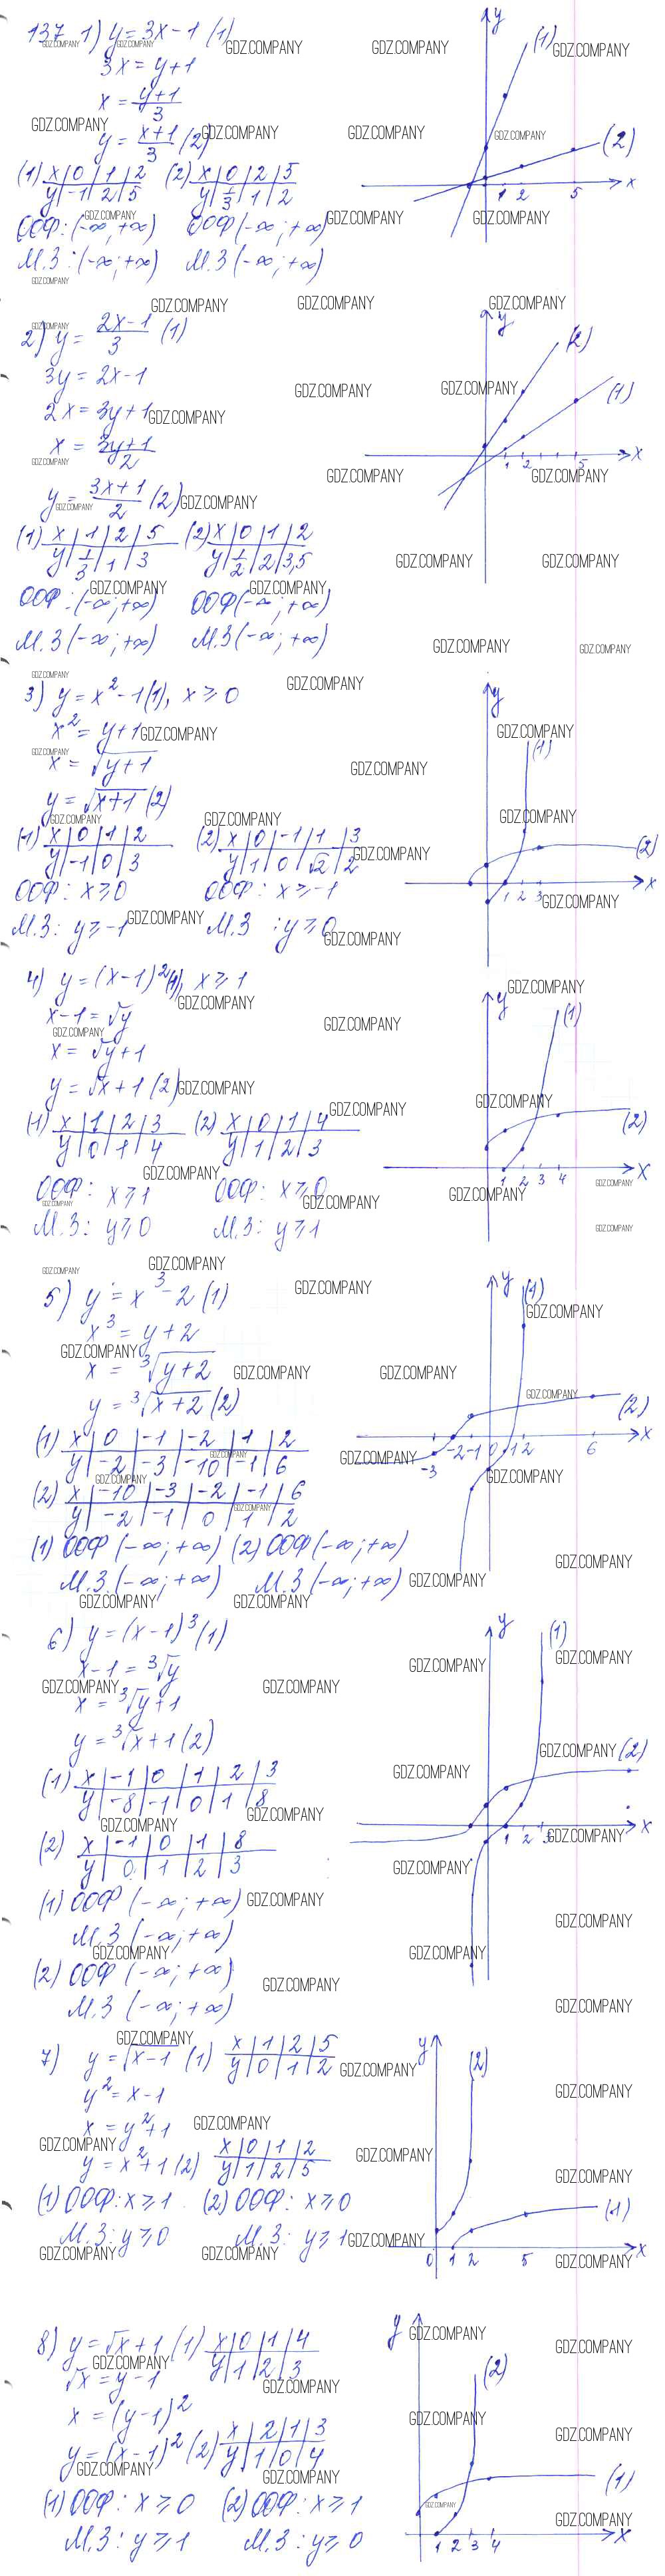 137 1) y = 3x-1 (1)
3x = y+1
x = (y+1)/3
y = (x+1)/3 (2)
(1) x | 0 | 1 | 2   (2) x | 0 | 2 | 5
y | -1 | 2 | 5   y | 1/3 | 1 | 2
ООФ: (-∞; +∞)   ООФ (-∞; +∞)
М.З: (-∞; +∞)   М.З (-∞; +∞)
2) y = (2x-1)/3 (1)
3y = 2x-1
2x = 3y+1
x = (3y+1)/2
y = (3x+1)/2 (2)
(1) x | 1 | 2 | 5   (2) x | 0 | 1 | 2
y | 1/3 | 1 | 3   y | 1/2 | 2 | 3,5
ООФ: (-∞; +∞)   ООФ (-∞; +∞)
М.З (-∞; +∞)   М.З (-∞; +∞)
3) y = x² - 1 (1), x ≥ 0
x² = y+1
x = √(y+1)
y = √(x+1) (2)
(1) x | 0 | 1 | 2   (2) x | 0 | -1 | 1 | 3
y | -1 | 0 | 3   y | 1 | 0 | √2 | 2
ООФ: x ≥ 0   ООФ: x ≥ -1
М.З: y ≥ -1   М.З: y ≥ 0
4) y = (x-1)² (1), x ≥ 1
x-1 = √y
x = √y + 1
y = √x + 1 (2)
(1) x | 1 | 2 | 3   (2) x | 0 | 1 | 4
y | 0 | 1 | 4   y | 1 | 2 | 3
ООФ: x ≥ 1   ООФ: x ≥ 0
М.З: y ≥ 0   М.З: y ≥ 1
5) y = x³ - 2 (1)
x³ = y+2
x = ³√(y+2)
y = ³√(x+2) (2)
(1) x | 0 | -1 | -2 | 1 | 2
y | -2 | -3 | -10 | -1 | 6
(2) x | -10 | -3 | -2 | -1 | 6
y | -2 | -1 | 0 | 1 | 2
(1) ООФ (-∞; +∞) (2) ООФ (-∞; +∞)
М.З. (-∞; +∞)   М.З (-∞; +∞)
6) y = (x-1)³ (1)
x-1 = ³√y
x = ³√y + 1
y = ³√x + 1 (2)
(1) x | -1 | 0 | 1 | 2 | 3
y | -8 | -1 | 0 | 1 | 8
(2) x | -1 | 0 | 1 | 8
y | 0 | 1 | 2 | 3
(1) ООФ (-∞; +∞)
М.З (-∞; +∞)
(2) ООФ (-∞; +∞)
М.З (-∞; +∞)
7) y = √(x-1) (1)   x | 1 | 2 | 5
y | 0 | 1 | 2
y² = x-1
x = y²+1
y = x²+1 (2)   x | 0 | 1 | 2
y | 1 | 2 | 5
(1) ООФ: x ≥ 1   (2) ООФ: x ≥ 0
М.З: y ≥ 0   М.З: y ≥ 1
8) y = √x + 1 (1)   x | 0 | 1 | 4
y | 1 | 2 | 3
√x = y-1
x = (y-1)²
y = (x-1)² (2)   x | 2 | 1 | 3
y | 1 | 0 | 4
(1) ООФ: x ≥ 0   (2) ООФ: x ≥ 1
М.З: y ≥ 1   М.З: y ≥ 0
GDZ.COMPANY